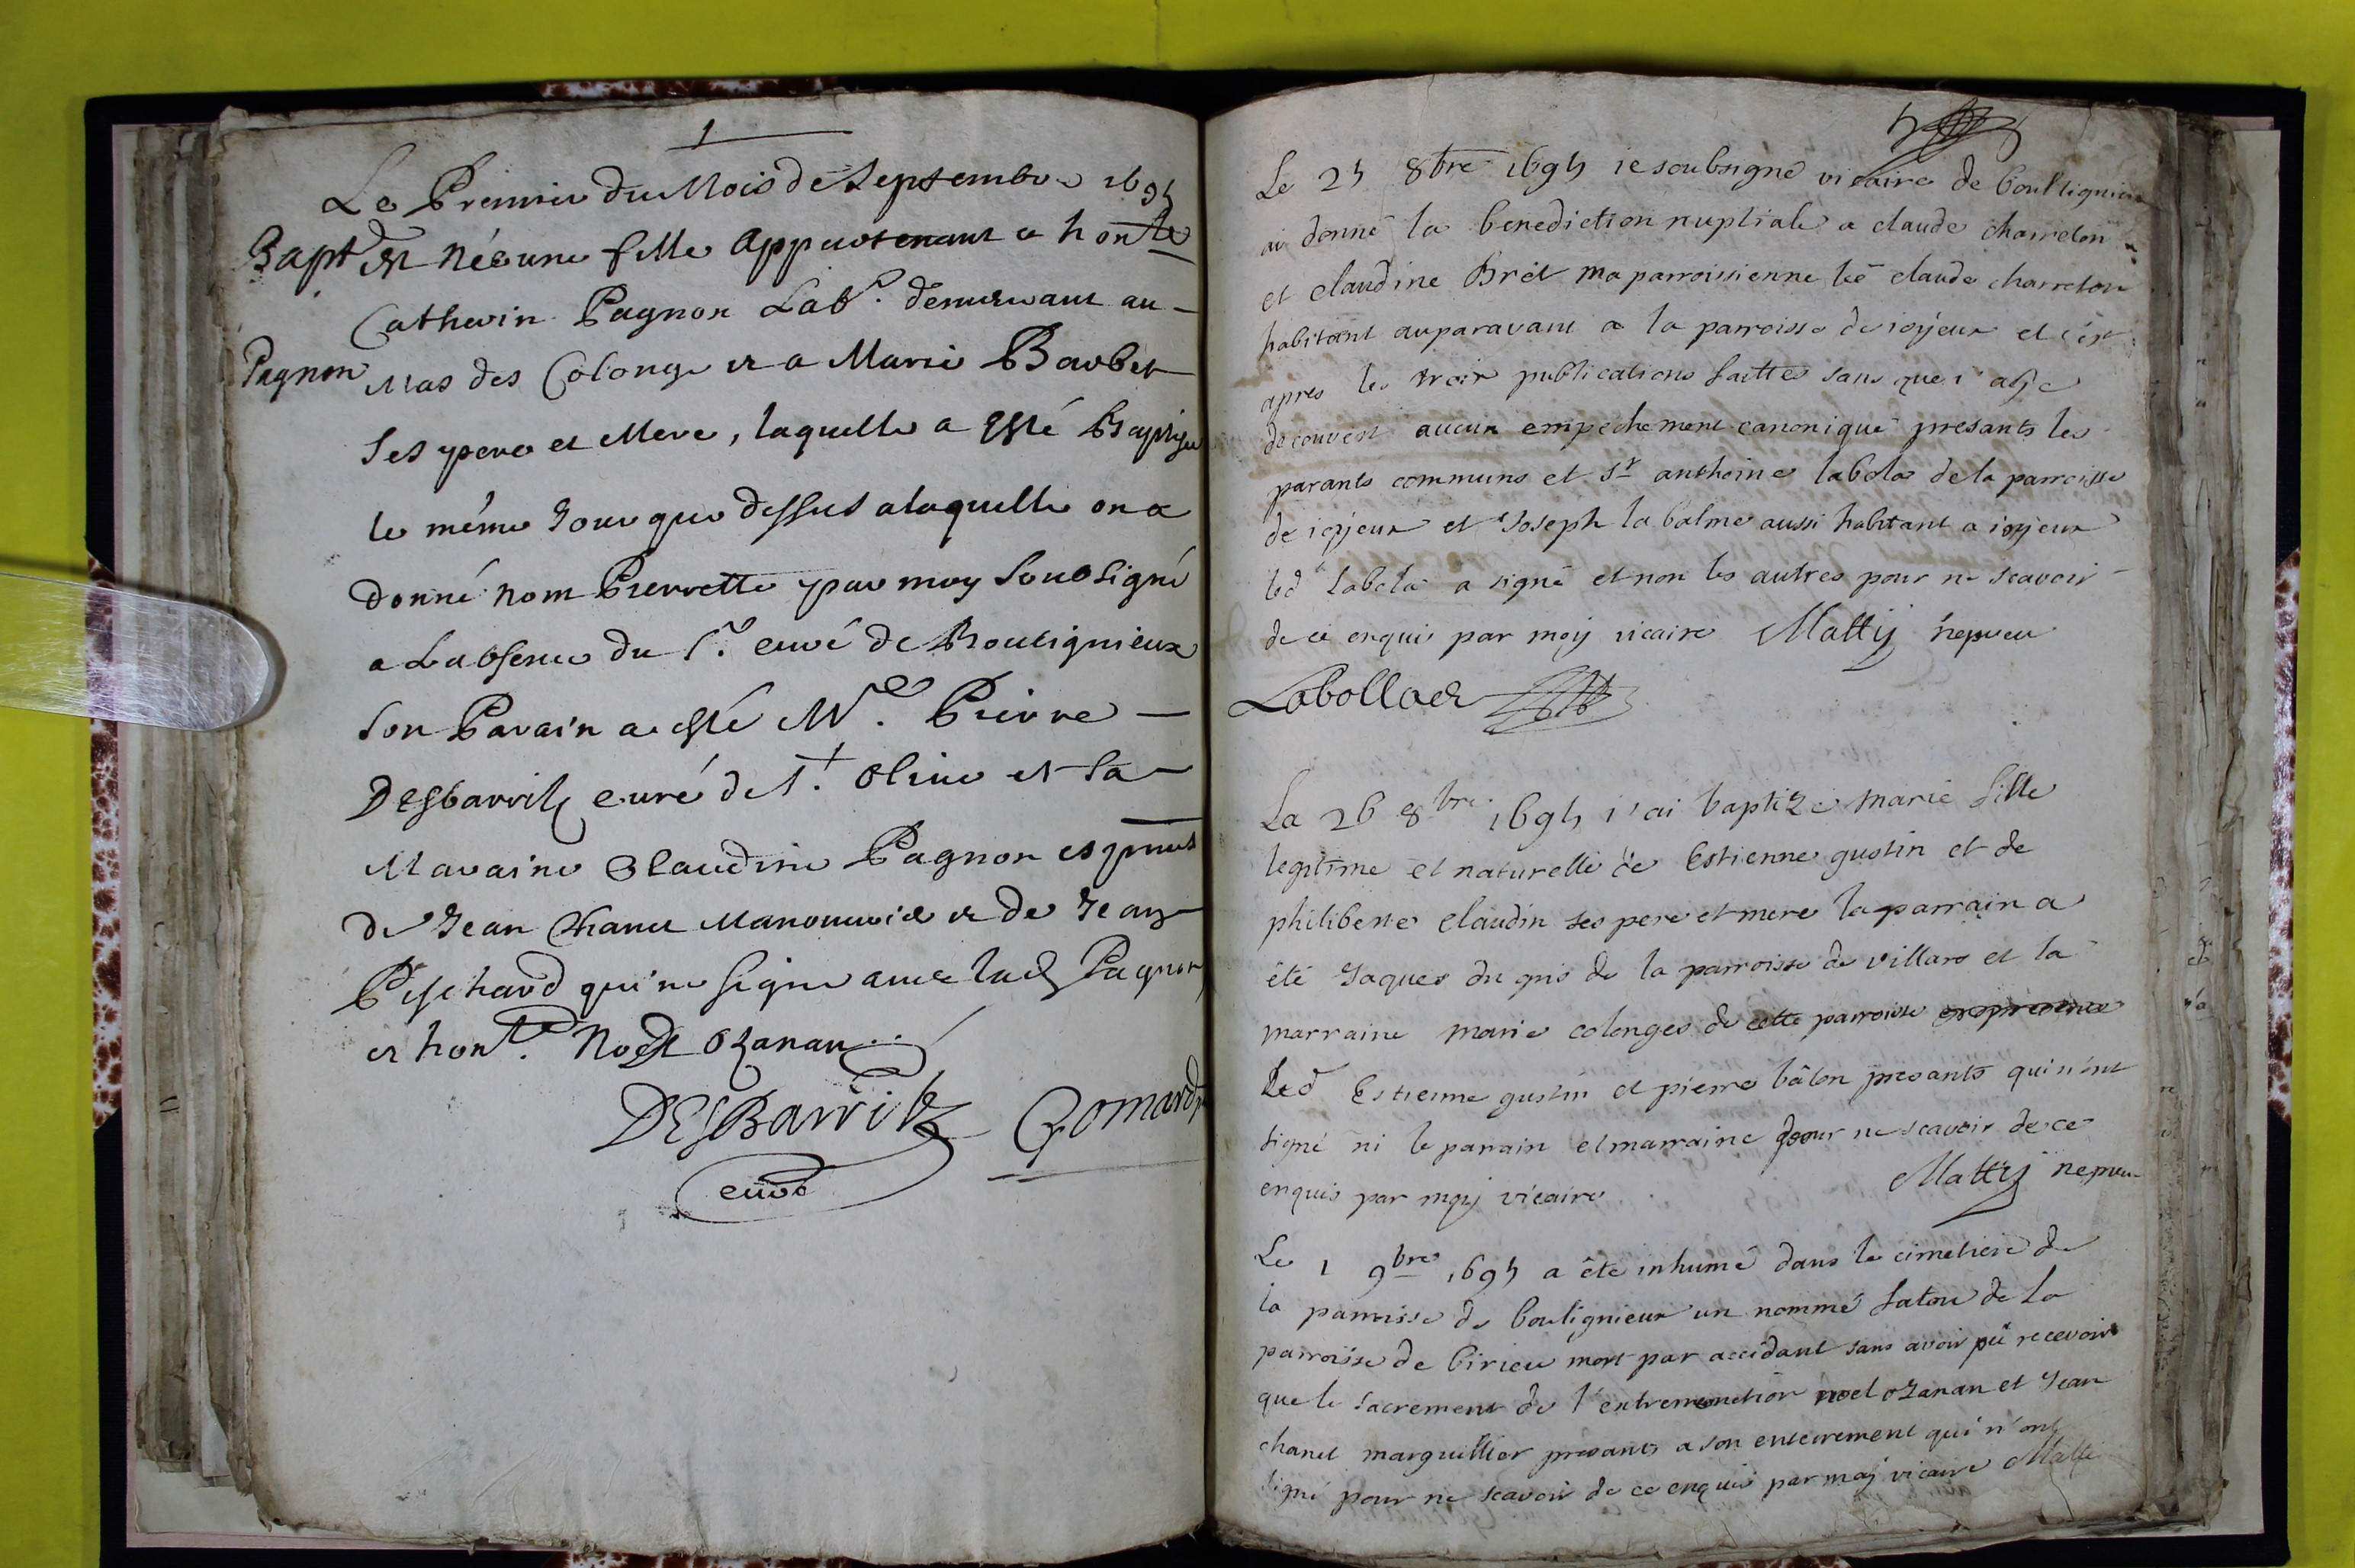 1
Le Premier du Mois de Septembre 1695
Bapt est née une fille appartenant a hon.te
Catherin Pagnon Lab.r demeurant au
Pagnon
Mas des Colonge et a Marie Barbet
ses pere et Mere, laquelle a esté Baptisée
le même Jour que dessus a laquelle on a
donné nom Pierrette par moy soubsigné
a Labsence du S.r curé de Bouligneux
son Parain a esté M.re Pierre
Desbarritz curé de S.t Olive et sa
Maraine Claudine Pagnon es pnces
de Jean Chanet Manouvrier et de Jean
Pischard qui ne signe avec lad Pagnon
et hon.te Noel Ozanan
DESBarritz Gomard
curé
5
Le 25 8bre 1695 ie soubsigné vicaire de boullignieu
ai donné la benediction nuptiale a claude charreton
et claudine Bret ma parroissienne le claude charreton
habitant auparavant a la parroisse de ioyeux et c'est
apres les trois publications faittes sans que i'aye
decouvert aucun empechement canonique presants les
parants communs et Sr anthoine labola de la parroisse
de ioyeux et Joseph la balme aussi habitant a ioyeux
led labola a signé et non les autres pour ne scavoir
de ce enquis par moy vicaire Mattij nepveu
Labollaer
La 26 8bre 1695 i'ai baptizé marie fille
legitime et naturelle de Estienne gustin et de
philiberte claudin ses pere et mere le parrain a
été Jaques du gris de la parroisse de villars et la
marraine marie colonges de cette parroisse
Led Estienne gustin et pierre bâton presants qui n'ont
signé ni le parain et marraine pour ne scavoir de ce
enquis par moy vicaire Mattij nepveu
Le 1 9bre 1695 a été inhumé dans le cimetiere de
la parroisse de bouligneux un nommé fatou de la
parroisse de birieu mort par accidant sans avoir pû recevoir
que le sacrement de l'extremonction noel ozanan et Jean
chanet marguillier presants a son enterrement qui n'ont
signé pour ne scavoir de ce enquis par moy vicaire Matti